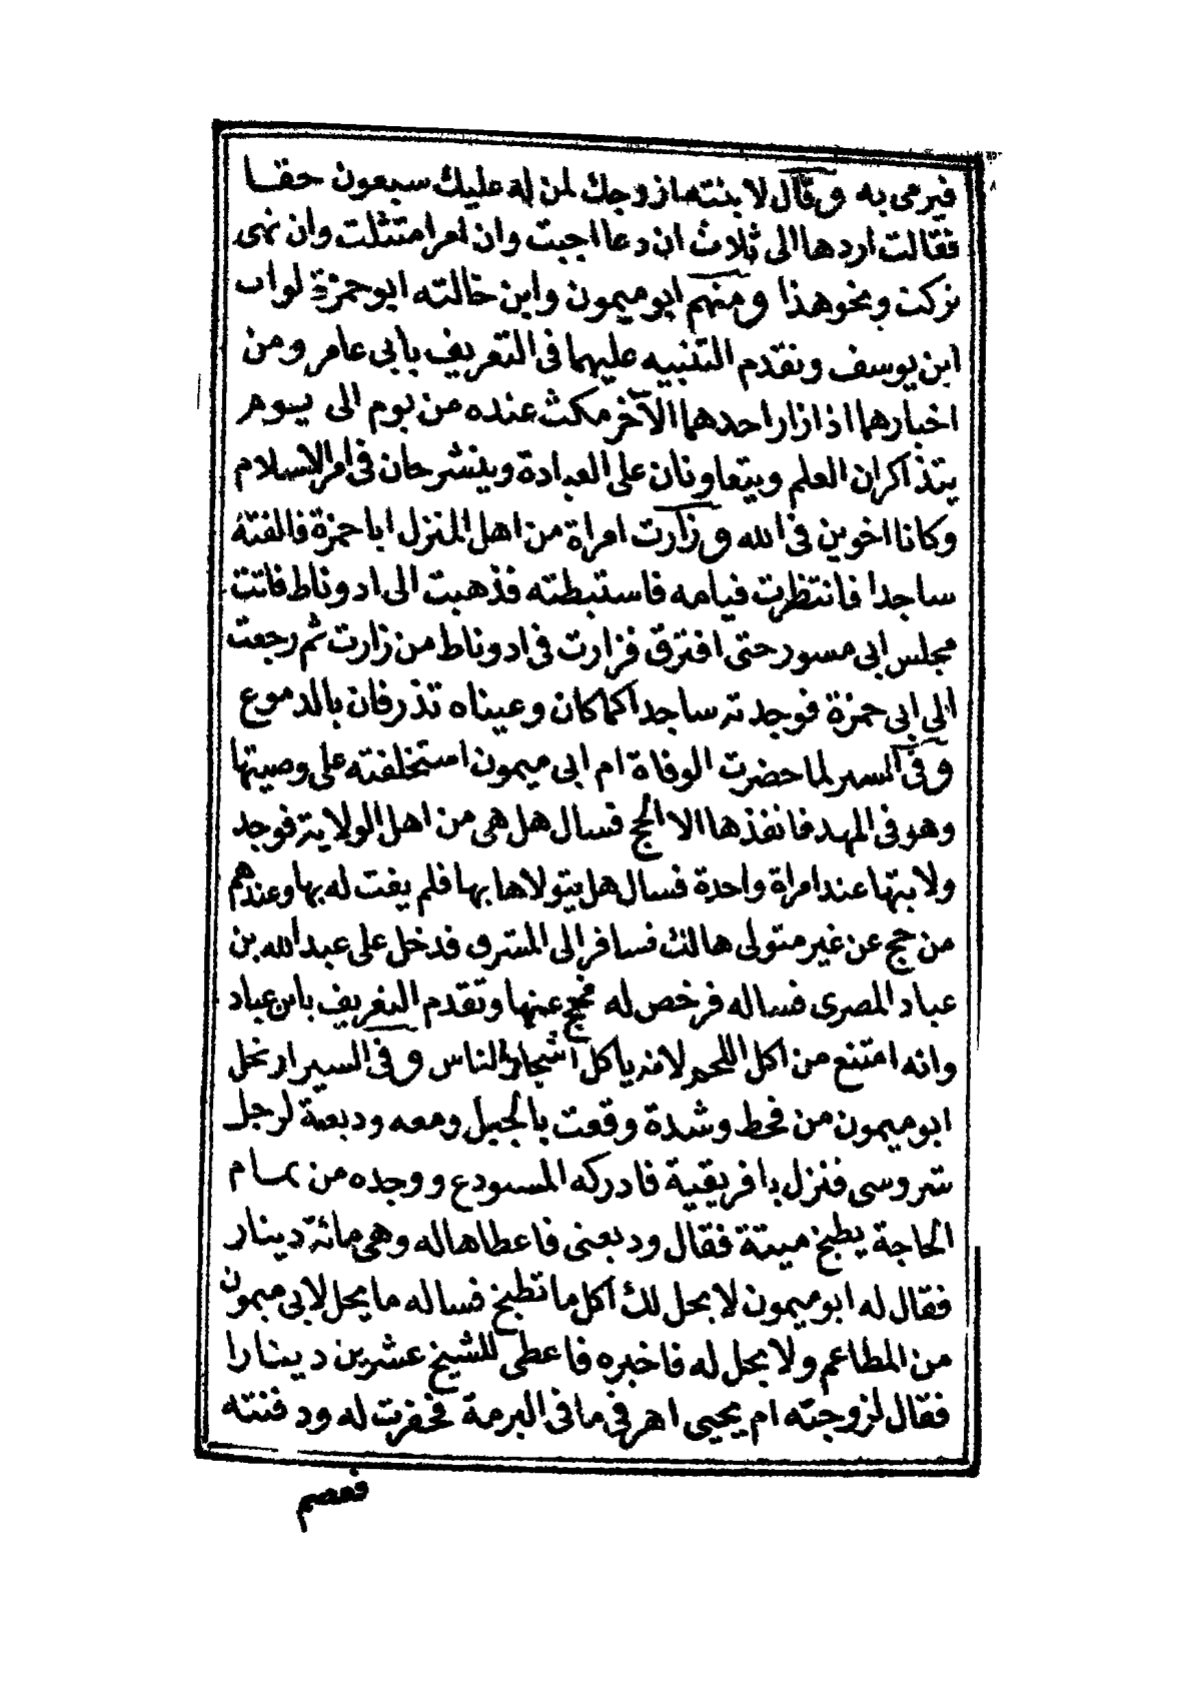 فيرمى به وقال لابنته ما زوجك لمن له عليك سبعون حقا
فقالت اردها الى ثلاث ان دعا اجبت وان امر امتثلت وان نهى
تركت ونحو هذا ومنهم ابو ميمون وابن خالته ابو حمزة لواب
ابن يوسف وتقدم التنبيه عليهما فى التعريف بابى عامر ومن
اخبارهما اذا زار احدهما الآخر مكث عنده من يوم الى يوم
يتذاكران العلم ويتعاونان على العبادة وينشرحان فى امر الاسلام
وكانا اخوين فى الله وزارت امراة من اهل المنزل ابا حمزة فالفته
ساجدا فانتظرت قيامه فاستبطته فذهبت الى ادوناط فاتت
مجلس ابى مسور حتى افترق فزارت فى ادوناط من زارت ثم رجعت
الى ابى حمزة فوجدته ساجدا كما كان وعيناه تذرفان بالدموع
وفى السير لما حضرت الوفاة ام ابى ميمون استخلفته على وصيتها
وهو فى المهد فانفذها الا الحج فسال هل هى من اهل الولاية فوجد
ولايتها عند امراة واحدة فسال هل يتولاها بها فلم يفت له بها وعندهم
من حج عن غير متولى هالك فسافر الى المشرق فدخل على عبد الله بن
عباد المصرى فساله فرخص له فحج عنها وتقدم التعريف بابن عباد
وانه امتنع من اكل اللحم لانه ياكل اشجار الناس وفى السير ارتحل
ابو ميمون من قحط وشدة وقعت بالجبل ومعه وديعة لرجل
شروسى فنزل بافريقية فادركه المستودع ووجده من تمام
الحاجة يطبخ ميتة فقال وديعتى فاعطاها له وهى مائة دينار
فقال له ابو ميمون لا يحل لك اكل ما تطبخ فساله ما يحل لابى ميمون
من المطاعم ولا يحل له فاخبره فاعطى للشيخ عشرين دينارا
فقال لزوجته ام يحيى اهرقى ما فى البرمة فحفرت له ودفنته